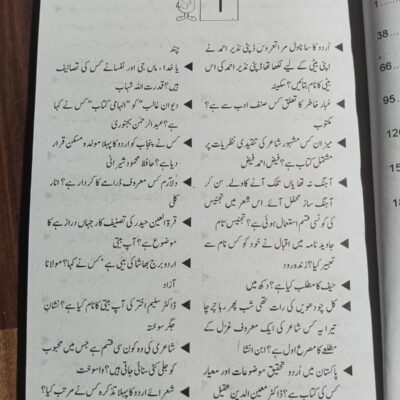 1
◄ اُردو کا سا ناول مراۃ العروس ڈپٹی نذیر احمد نے
اپنی بیٹی کے لیے لکھا تھا ڈپٹی نذیر احمد کی اس
بیٹی کا نام بتائیں؟ سکینہ
◄ غبار خاطر کا تعلق کس صنف ادب سے ہے؟
مکتوب
◄ میزان کس مشہور شاعر کی تنقیدی نظریات پر
مشتمل کتاب ہے؟ فیض احمد فیض
◄ آہنگ نہ تھا یاں تلک آنے کا ولے. سن کر
آہنگ ساز محفل آئے. اس شعر میں تجنیس
کی کونسی قسم استعمال ہوئی ہے؟ تجنیس تام
◄ جاوید نامہ میں اقبال نے خود کو کس نام سے
تعبیر کیا؟ زندہ رود
◄ حیف کا مطلب کیا ہے؟ دکھ میں
◄ کل چودھویں کی رات تھی شب بھر رہا چرچا
تیرا یہ کس شاعر کی ایک معروف غزل کے
مطلعے کا مصرع اول ہے؟ ابن انشا
◄ پاکستان میں اُردو تحقیق موضوعات اور معیار
کس کی کتاب ہے؟ ڈاکٹر معین الدین عقیل
چند
◄ یا خدا، ماں جی اور نفسانے کس کی تصانیف
ہیں؟ قدرت اللہ شہاب
◄ دیوان غالب کو "الہامی کتاب" کس نے کہا
ہے؟ عبدالرحمٰن بجنوری
◄ کس نے پنجاب کو اردو کا پہلا مولد و مسکن قرار
دیا ہے؟ حافظ محمود شیرانی
◄ دلآرم کس معروف ڈرامے کا کردار ہے؟ انار
کلی
◄ قرۃ العین حیدر کی تصنیف کار جہاں دراز ہے کا
موضوع ہے؟ آپ بیتی
◄ اردو برج بھاشا کی بیٹی ہے "کس نے کہا؟ مولانا
آزاد
◄ ڈاکٹر سلیم اختر کی آپ بیتی کا نام کیا ہے؟ نشان
جگر سوختہ
◄ شاعری کی وہ کون سی قسم ہے جس میں محبوب
کو جلی کٹی سنائی جاتی ہیں؟ واسوخت
◄ شعرائے اردو کا پہلا تذکرہ کس نے مرتب کیا؟
1
38
95
120
126